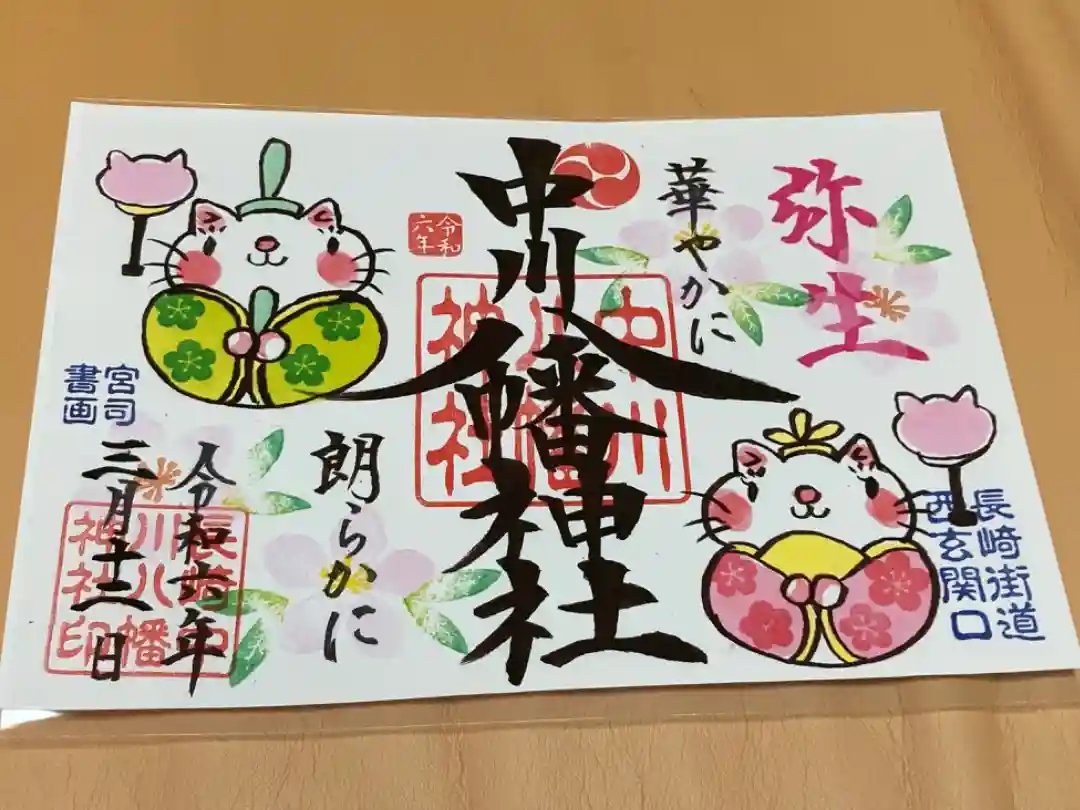 弥生
華やかに
中川八幡神社
中川
八幡
神社
令和
六年
朗らかに
長崎街道
西玄関口
宮司
書画
令和六年
三月十二日
長崎中
川八幡
神社印